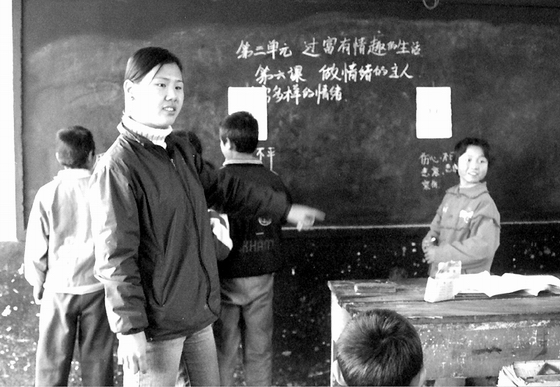 第三单元 过富有情趣的生活
第六课 做情绪的主人
富多样的情绪
不平
伤心